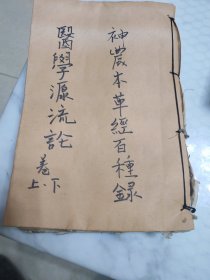 神農本草經百種錄
醫學源流論
卷
上下